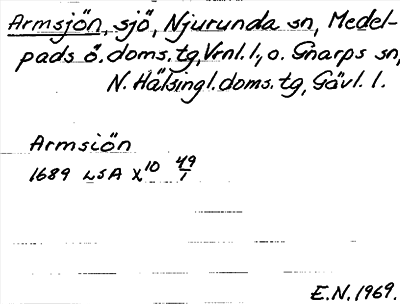 Armsjön, sjö, Njurunda sn, Medel-
pads ö. doms. tg, Vrnl. l., o. Gnarps sn,
N. Hälsingl. doms. tg, Gävl. l.
Armsiön
1689 LSA X10 49/1
E.N. 1969.